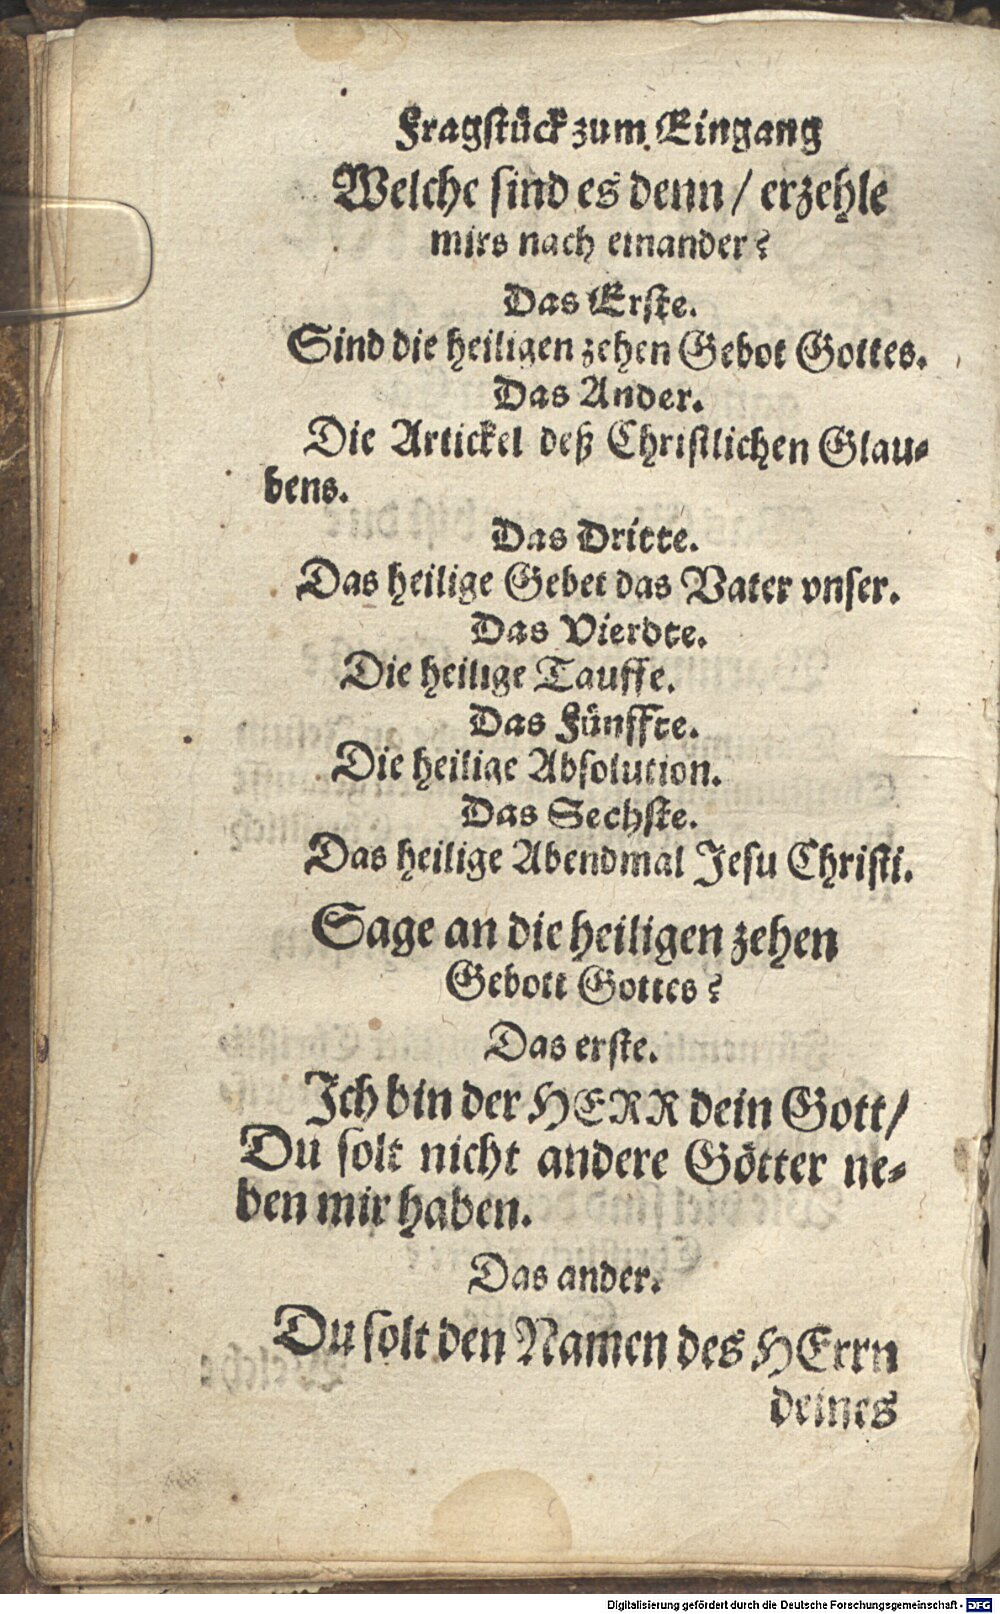 Fragstück zum Eingang
Welche sind es denn / erzehle
mirs nach einander?
Das Erste.
Sind die heiligen zehen Gebot Gottes.
Das Ander.
Die Artickel deß Christlichen Glau-
bens.
Das Dritte.
Das heilige Gebet das Vater vnser.
Das Vierdte.
Die heilige Tauffe.
Das Fünffte.
Die heilige Absolution.
Das Sechste.
Das heilige Abendmal Jesu Christi.
Sage an die heiligen zehen
Gebott Gottes?
Das erste.
Ich bin der HERR dein Gott/
Du solt nicht andere Götter ne-
ben mir haben.
Das ander.
Du solt den Namen des HErrn
deines
Digitalisierung gefördert durch die Deutsche Forschungsgemeinschaft - DFG